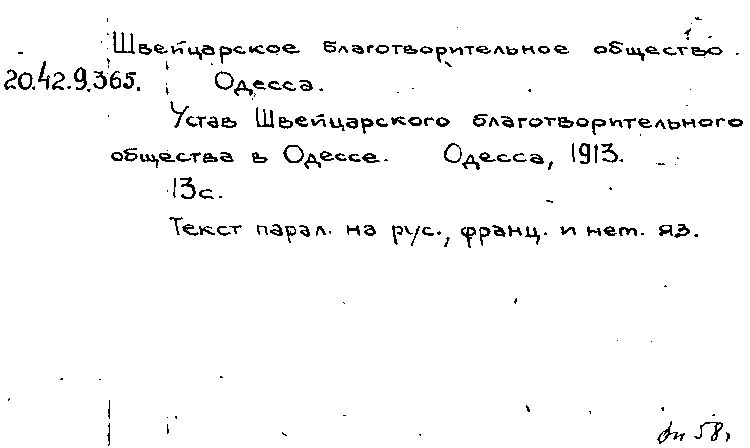 Швейцарское благотворительное общество.
20.42.9.365. Одесса.
Устав Швейцарского благотворительного
общества в Одессе. Одесса, 1913.
13с.
Текст парал. на рус., франц. и нем. яз.
58г